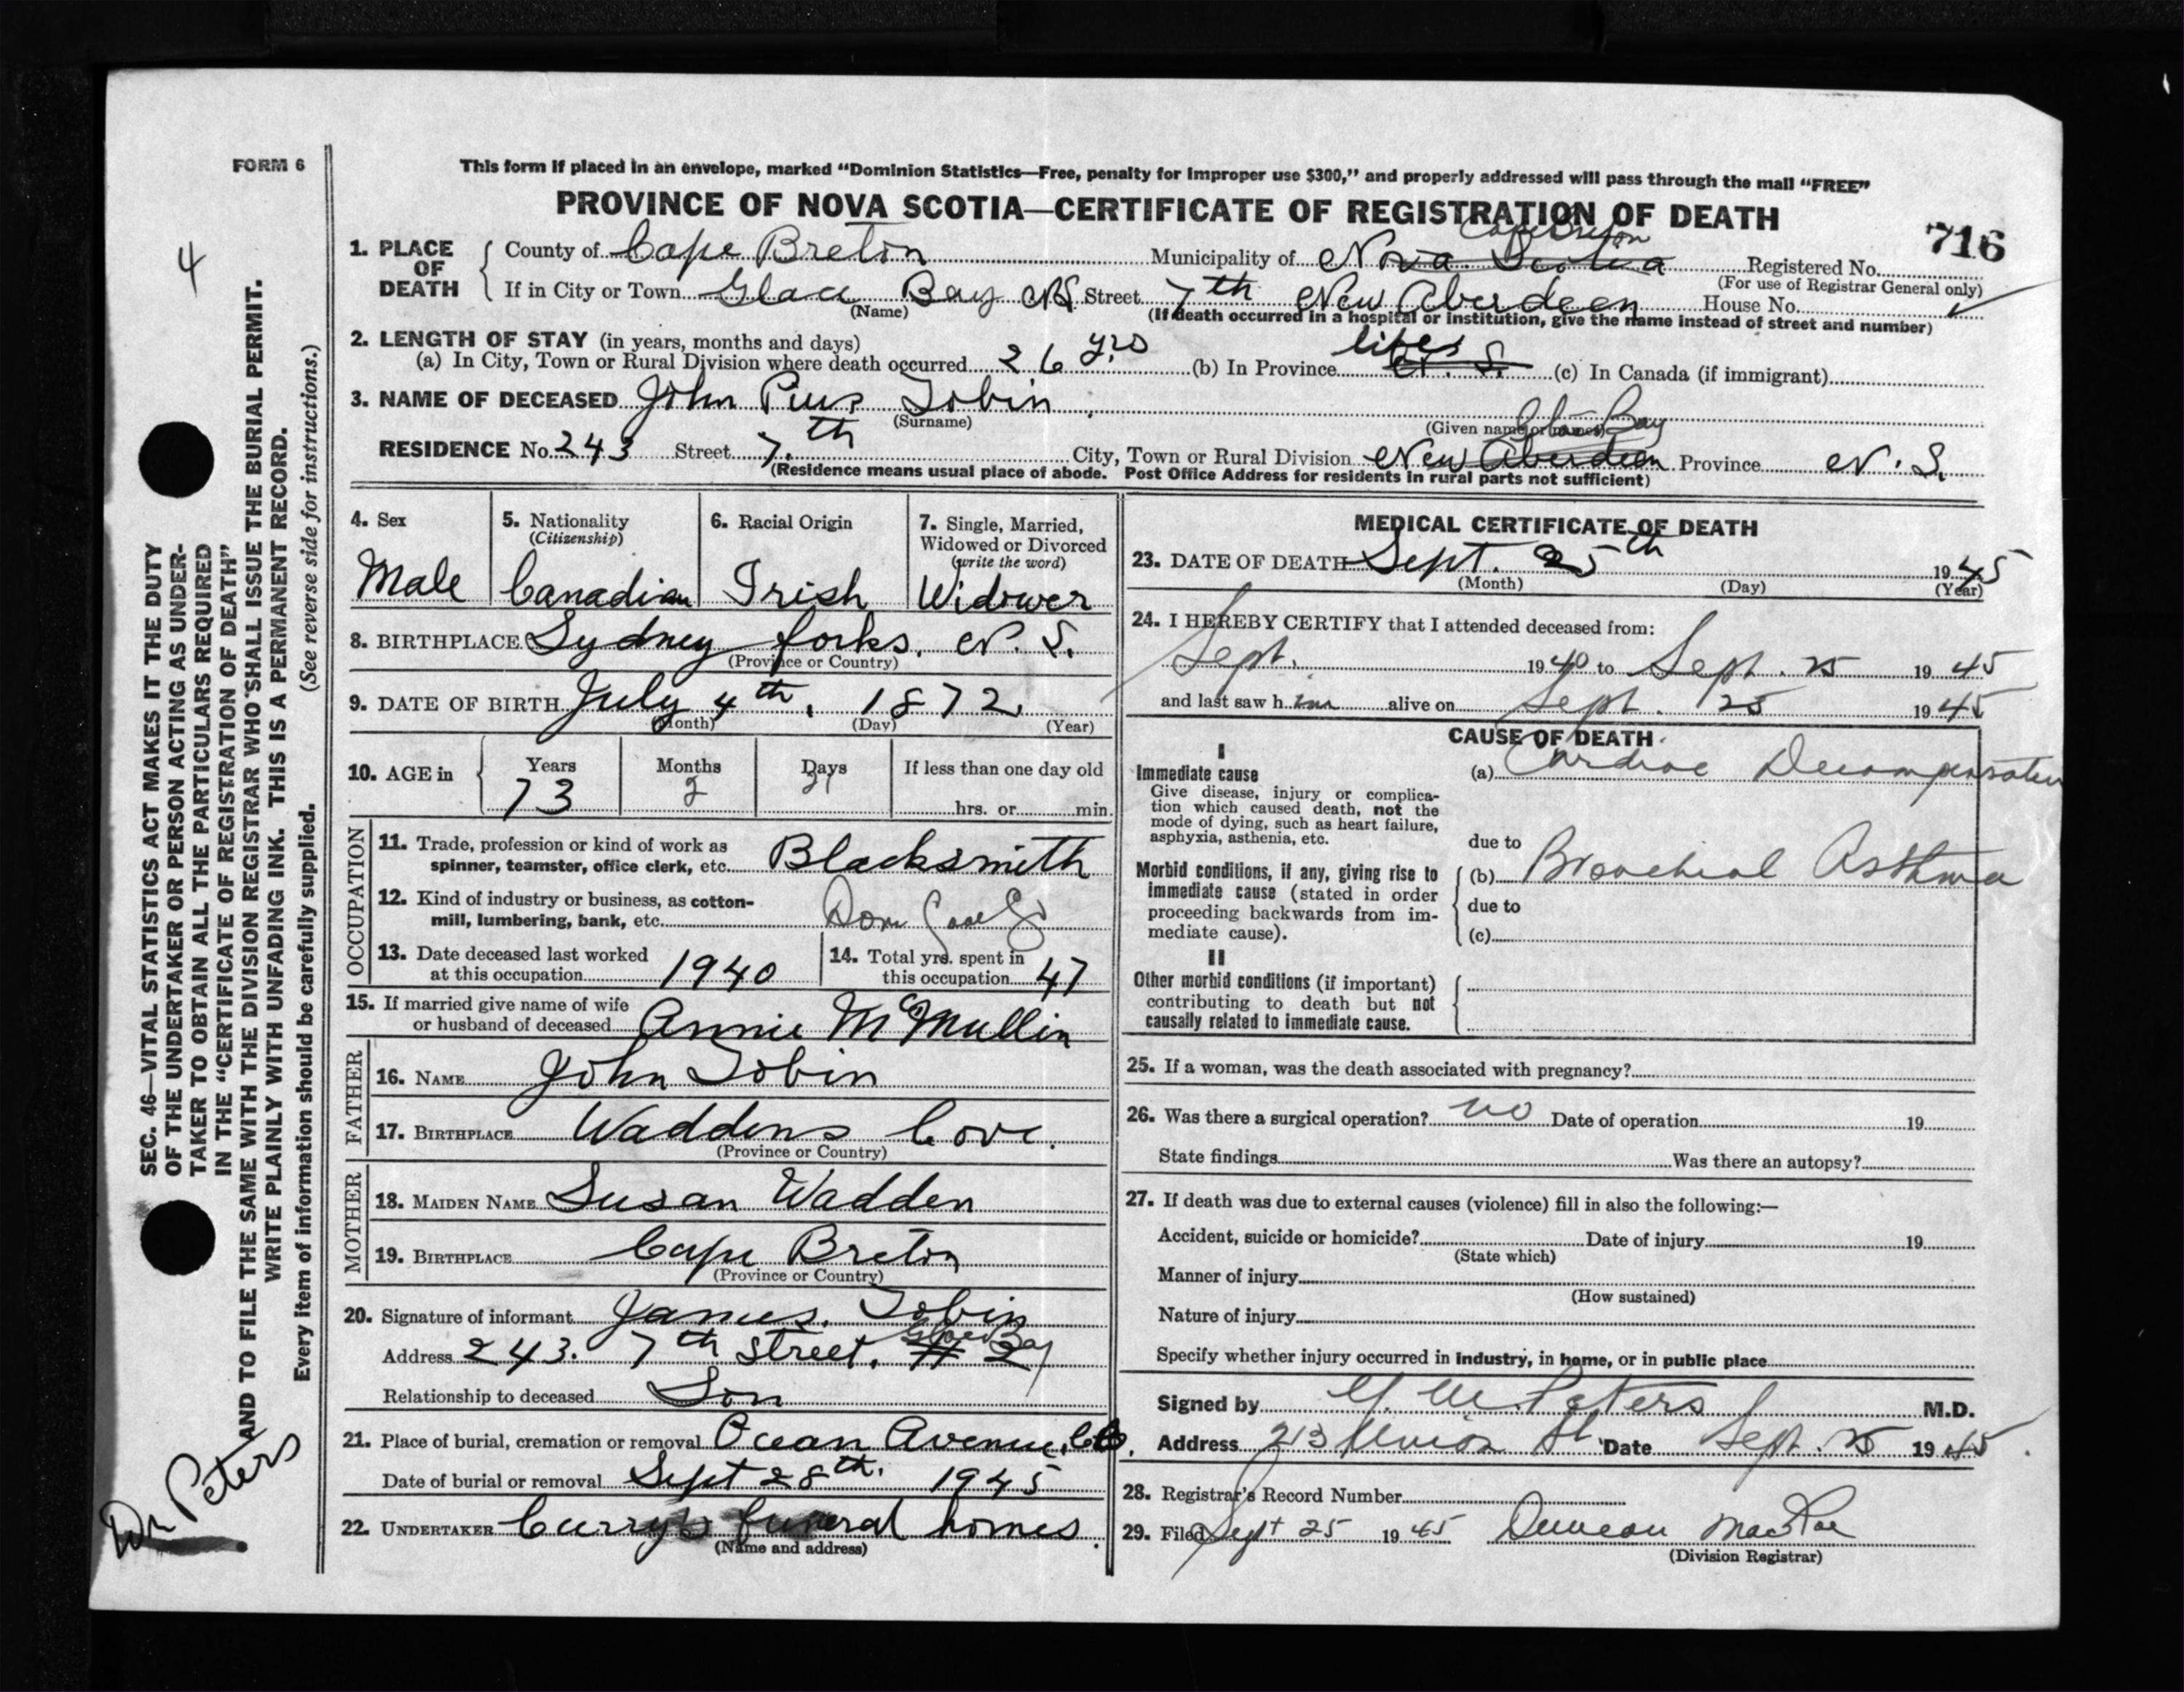 FORM 6
This form if placed in an envelope, marked "Dominion Statistics—Free, penalty for improper use $300," and properly addressed will pass through the mail "FREE"
PROVINCE OF NOVA SCOTIA—CERTIFICATE OF REGISTRATION OF DEATH
716
4
1. PLACE OF DEATH
County of Cape Breton Municipality of Nova Scotia Cape Breton Registered No.
(For use of Registrar General only)
If in City or Town Glace Bay N.S. Street 7th New Aberdeen House No.
(Name) (If death occurred in a hospital or institution, give the name instead of street and number)
2. LENGTH OF STAY (in years, months and days)
(a) In City, Town or Rural Division where death occurred 26 yrs (b) In Province N. S. life (c) In Canada (if immigrant)
3. NAME OF DECEASED John Pius Tobin
(Surname) (Given name or names)
RESIDENCE No. 243 Street 7th City, Town or Rural Division New Aberdeen Glace Bay Province N. S.
(Residence means usual place of abode. Post Office Address for residents in rural parts not sufficient)
4. Sex
Male
5. Nationality
(Citizenship)
Canadian
6. Racial Origin
Irish
7. Single, Married,
Widowed or Divorced
(write the word)
Widower
8. BIRTHPLACE Sydney forks. N. S.
(Province or Country)
9. DATE OF BIRTH July 4th, 1872
(Month) (Day) (Year)
10. AGE in
Years Months Days If less than one day old
73 2 21 hrs. or min.
OCCUPATION
11. Trade, profession or kind of work as
spinner, teamster, office clerk, etc. Blacksmith
12. Kind of industry or business, as cotton-
mill, lumbering, bank, etc. Dom Coal Co
13. Date deceased last worked
at this occupation 1940
14. Total yrs. spent in
this occupation 47
15. If married give name of wife
or husband of deceased Annie McMullin
FATHER
16. NAME John Tobin
17. BIRTHPLACE Waddens Cove.
(Province or Country)
MOTHER
18. MAIDEN NAME Susan Wadden
19. BIRTHPLACE Cape Breton
(Province or Country)
20. Signature of informant James. Tobin
Address 243. 7th Street. # 2 Glace Bay
Relationship to deceased Son
21. Place of burial, cremation or removal Ocean Avenue, C.B.
Date of burial or removal Sept 28th. 1945
22. UNDERTAKER Curry's funeral homes.
(Name and address)
MEDICAL CERTIFICATE OF DEATH
23. DATE OF DEATH Sept. 25th 1945
(Month) (Day) (Year)
24. I HEREBY CERTIFY that I attended deceased from:
Sept. 1940 to Sept. 25 1945
and last saw h im alive on Sept. 25 1945
CAUSE OF DEATH
I
Immediate cause
Give disease, injury or complica-
tion which caused death, not the
mode of dying, such as heart failure,
asphyxia, asthenia, etc.
(a) Cardiac Decompensation
due to
Morbid conditions, if any, giving rise to
immediate cause (stated in order
proceeding backwards from im-
mediate cause).
(b) Bronchial Asthma
due to
(c)
II
Other morbid conditions (if important)
contributing to death but not
causally related to immediate cause.
25. If a woman, was the death associated with pregnancy?
26. Was there a surgical operation? no Date of operation 19
State findings Was there an autopsy?
27. If death was due to external causes (violence) fill in also the following:—
Accident, suicide or homicide? Date of injury 19
(State which)
Manner of injury
(How sustained)
Nature of injury
Specify whether injury occurred in industry, in home, or in public place
Signed by Peters M.D.
Address 213 Union St Date Sept. 25 1945
28. Registrar's Record Number
29. Filed Sept 25 1945 Duncan MacRae
(Division Registrar)
SEC. 46—VITAL STATISTICS ACT MAKES IT THE DUTY
OF THE UNDERTAKER OR PERSON ACTING AS UNDER-
TAKER TO OBTAIN ALL THE PARTICULARS REQUIRED
IN THE "CERTIFICATE OF REGISTRATION OF DEATH"
AND TO FILE THE SAME WITH THE DIVISION REGISTRAR WHO SHALL ISSUE THE BURIAL PERMIT.
WRITE PLAINLY WITH UNFADING INK. THIS IS A PERMANENT RECORD.
Every item of information should be carefully supplied. (See reverse side for instructions.)
Dr Peters